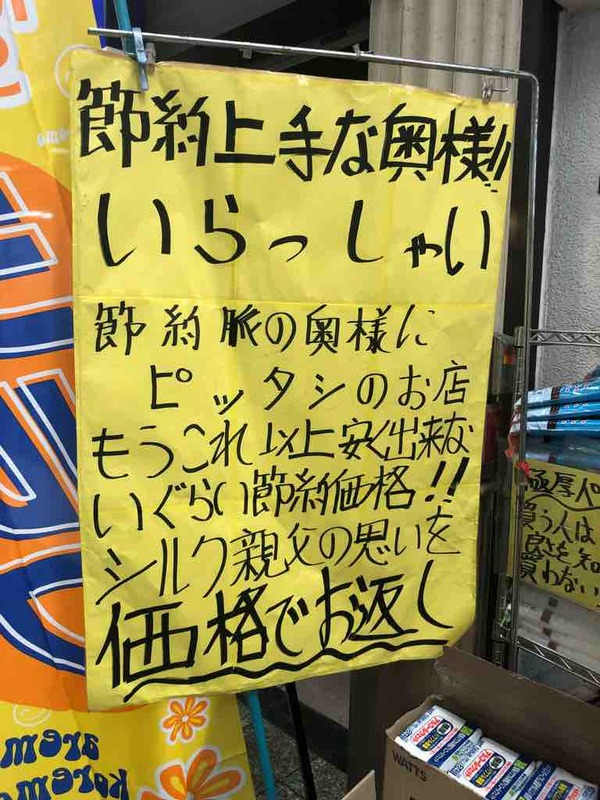 節約上手な奥様!!
いらっしゃい
節約脈の奥様に
ピッタシのお店
もうこれ以上安く出来な
いぐらい節約価格!!
シルク親父の思いを
価格でお返し
極厚
買う人は
良さを知
買わない
WATTS